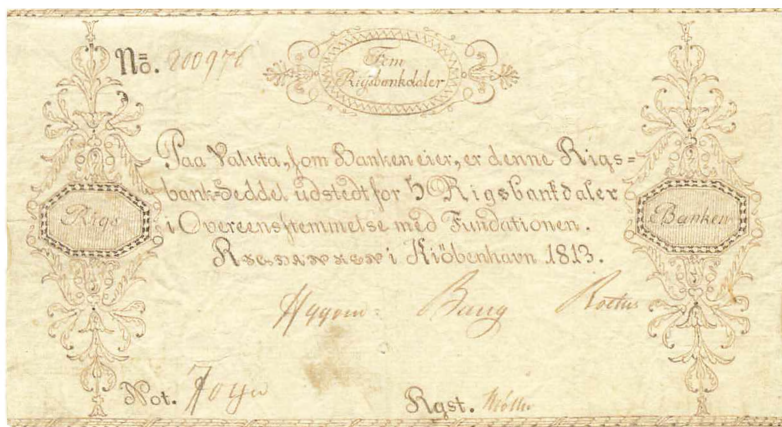 No. 200976
Fem
Rigsbankdaler
Paa Valuta, som Banken eier, er denne Rigs=
bank-Seddel udstedt for 5 Rigsbankdaler
i Overeensstemmelse med Fundationen.
Rigsbanken i Kiöbenhavn 1813.
Rigs
Banken
Not.
Rgst.